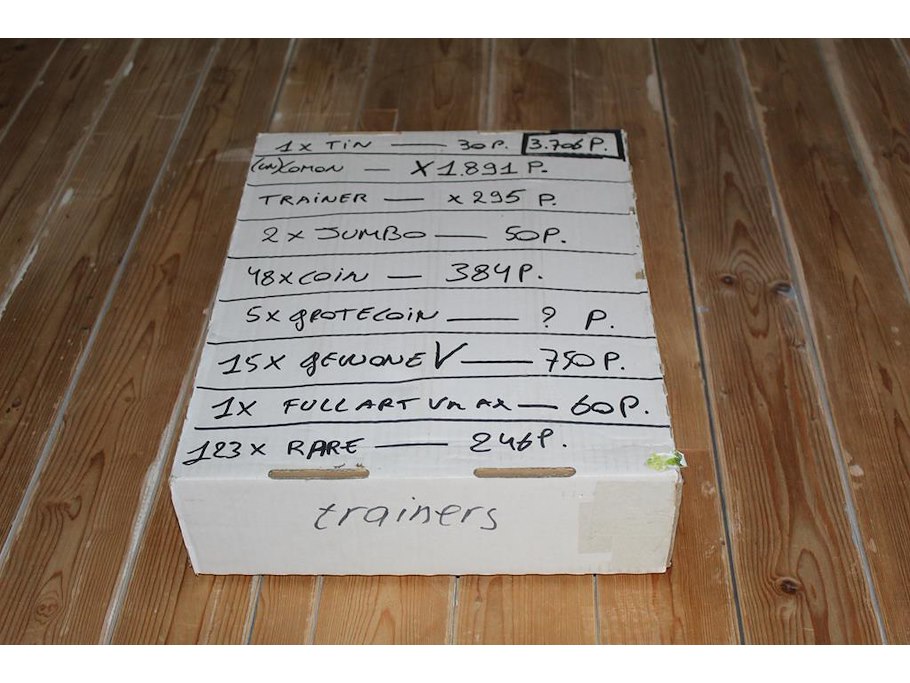 1x TIN — 30P. 3.706 P.
(un)COMON — X1.891 P.
TRAINER — x 295 P.
2 x JUMBO — 50P.
48x COIN — 384P.
5x GROTECOIN — ? P.
15x GEWONE V — 750 P.
1x FULL ART VMAX — 60P.
123x RARE — 246P.
trainers